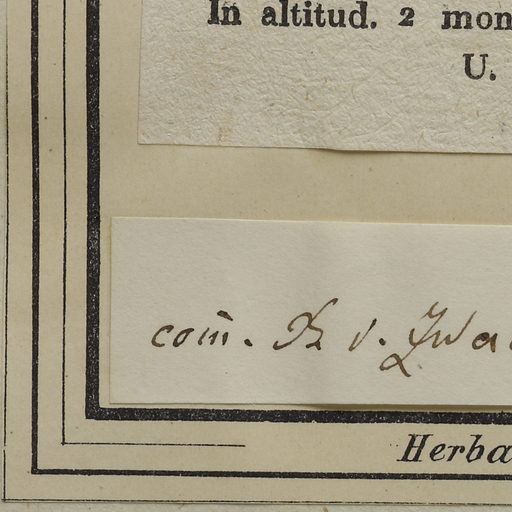 In altitud. 2 mon
U.
com̄. B v. Zwa
Herba